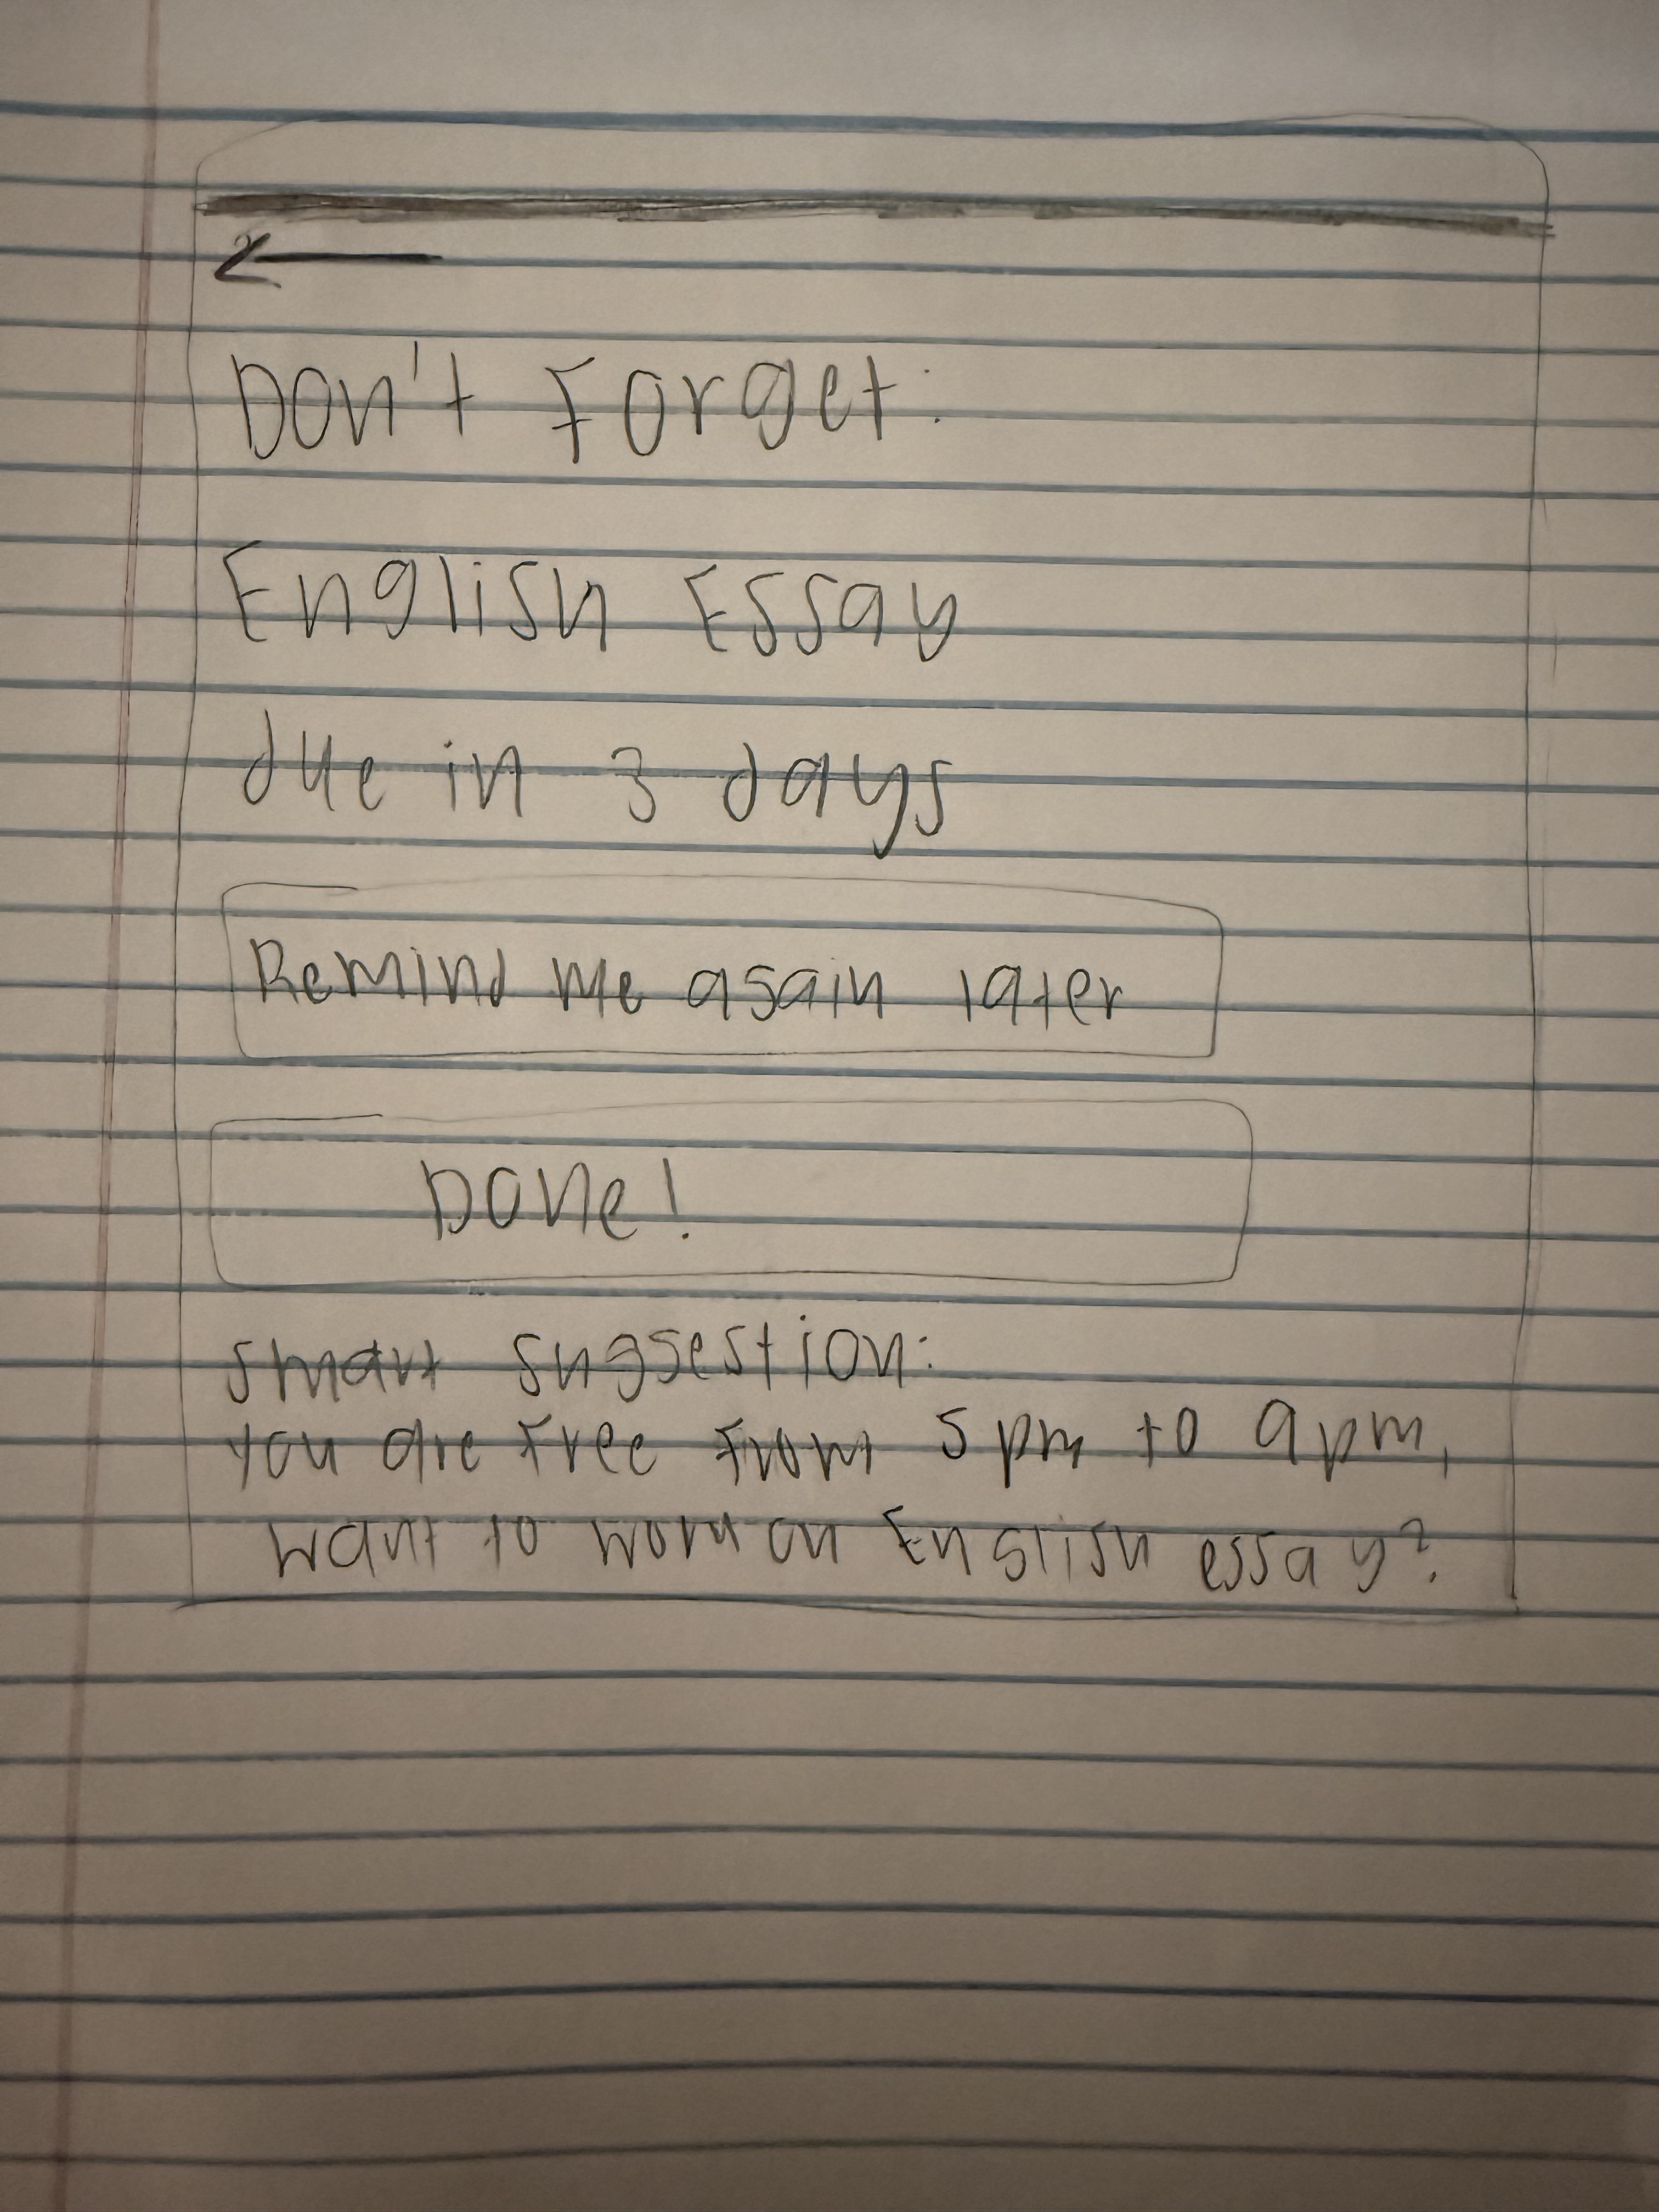 Don't Forget:
English Essay
due in 3 days
Remind me again later
Done!
Smart suggestion:
You are free from 5 pm to 9 pm,
want to work on English essay?